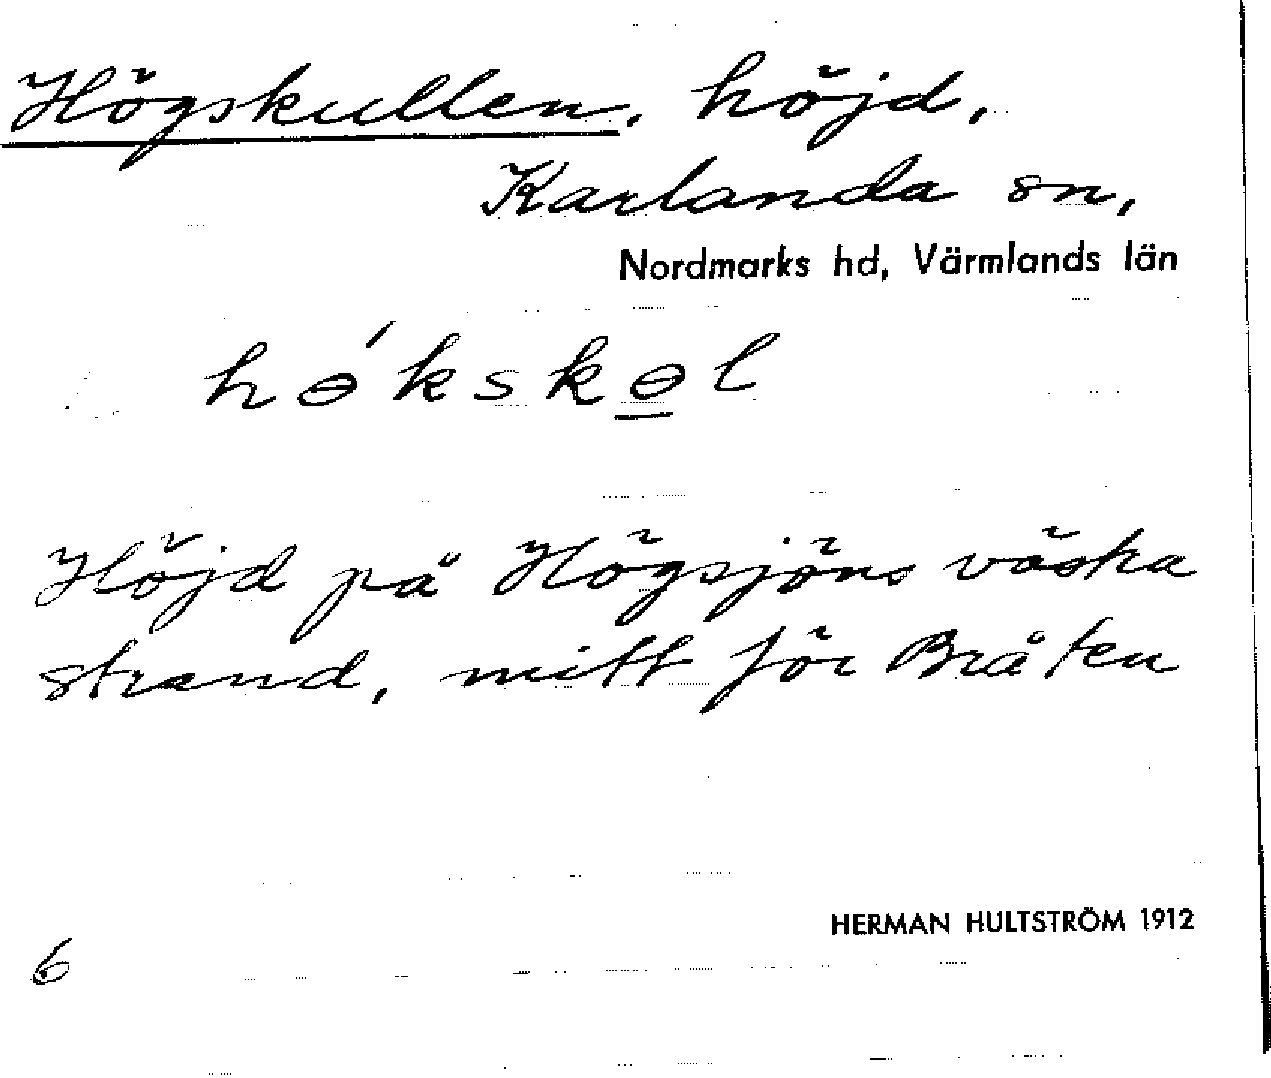 Högskullen, höjd,
Karlanda sn,
Nordmarks hd, Värmlands län
hɵ́kskɵ̲l
Höjd på Högsjöns västra
strand, mitt för Bråten
HERMAN HULTSTRÖM 1912
6